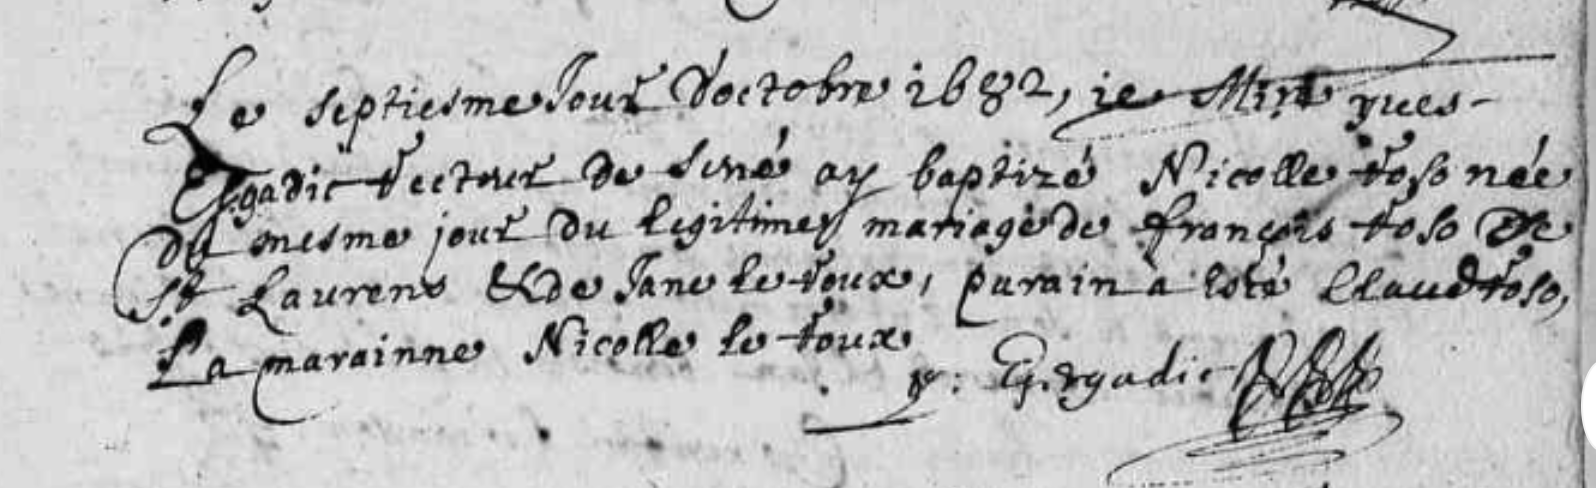 Le septiesme Jour d'octobre 1682, je Misre yues
Gergadic recteur de Siné ay baptizé Nicolle roso née
du mesme jour du legitime mariage de françois roso de
St Laurens & de Jane le roux, parain a esté Claud roso,
La marainne Nicolle le roux
y: Gergadic